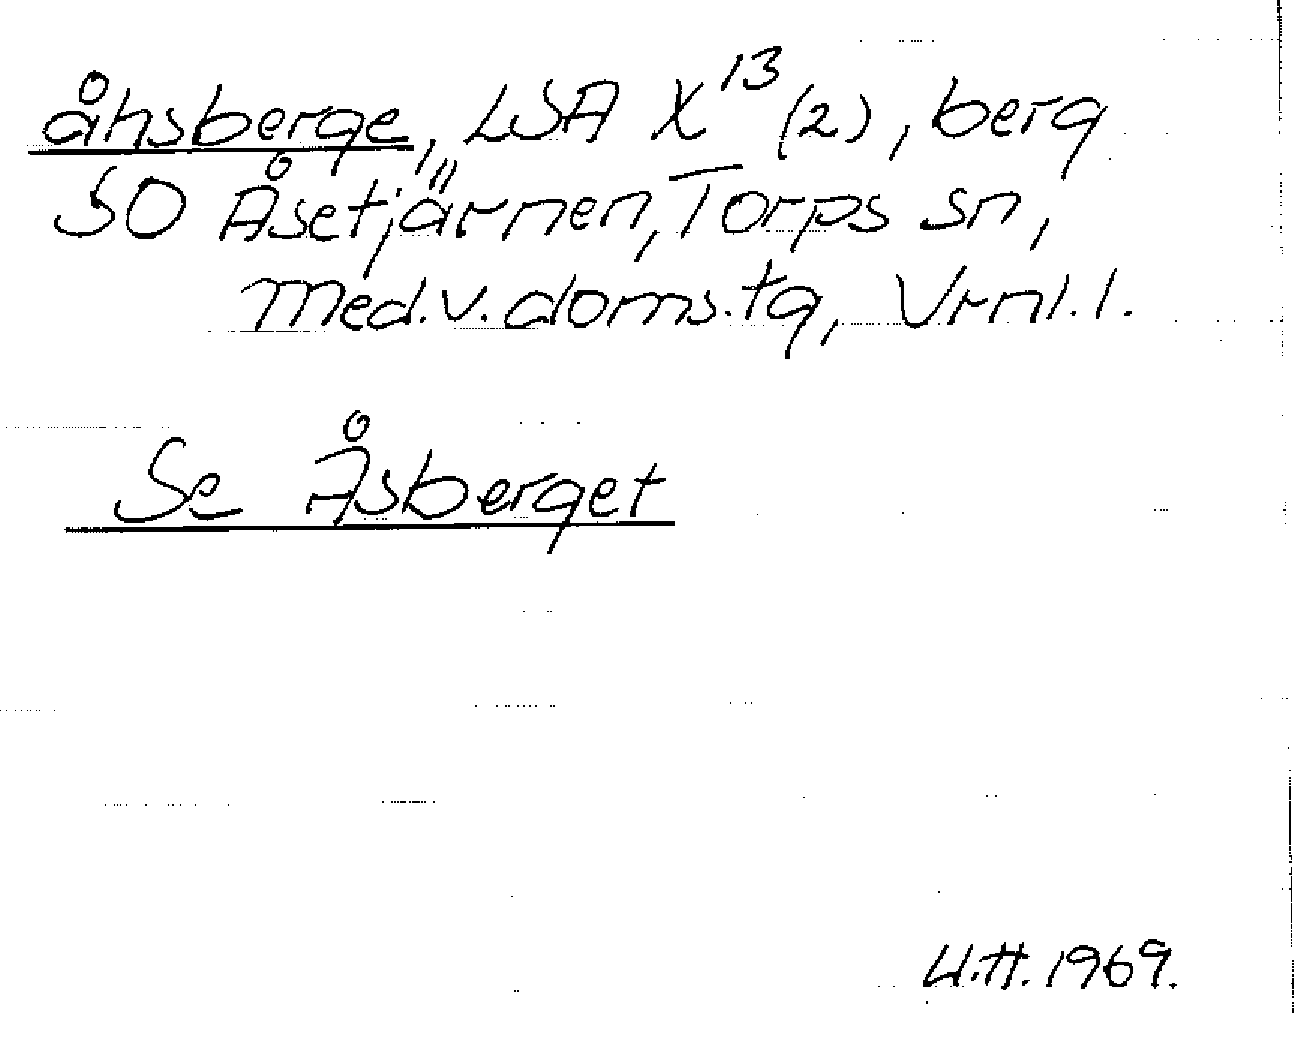 åhsberge, LSA X¹³ (2), berg
SO Åsetjärnen, Torps sn,
Med.v.doms.tg, Vrml.l.
Se Åsberget
U.H. 1969.